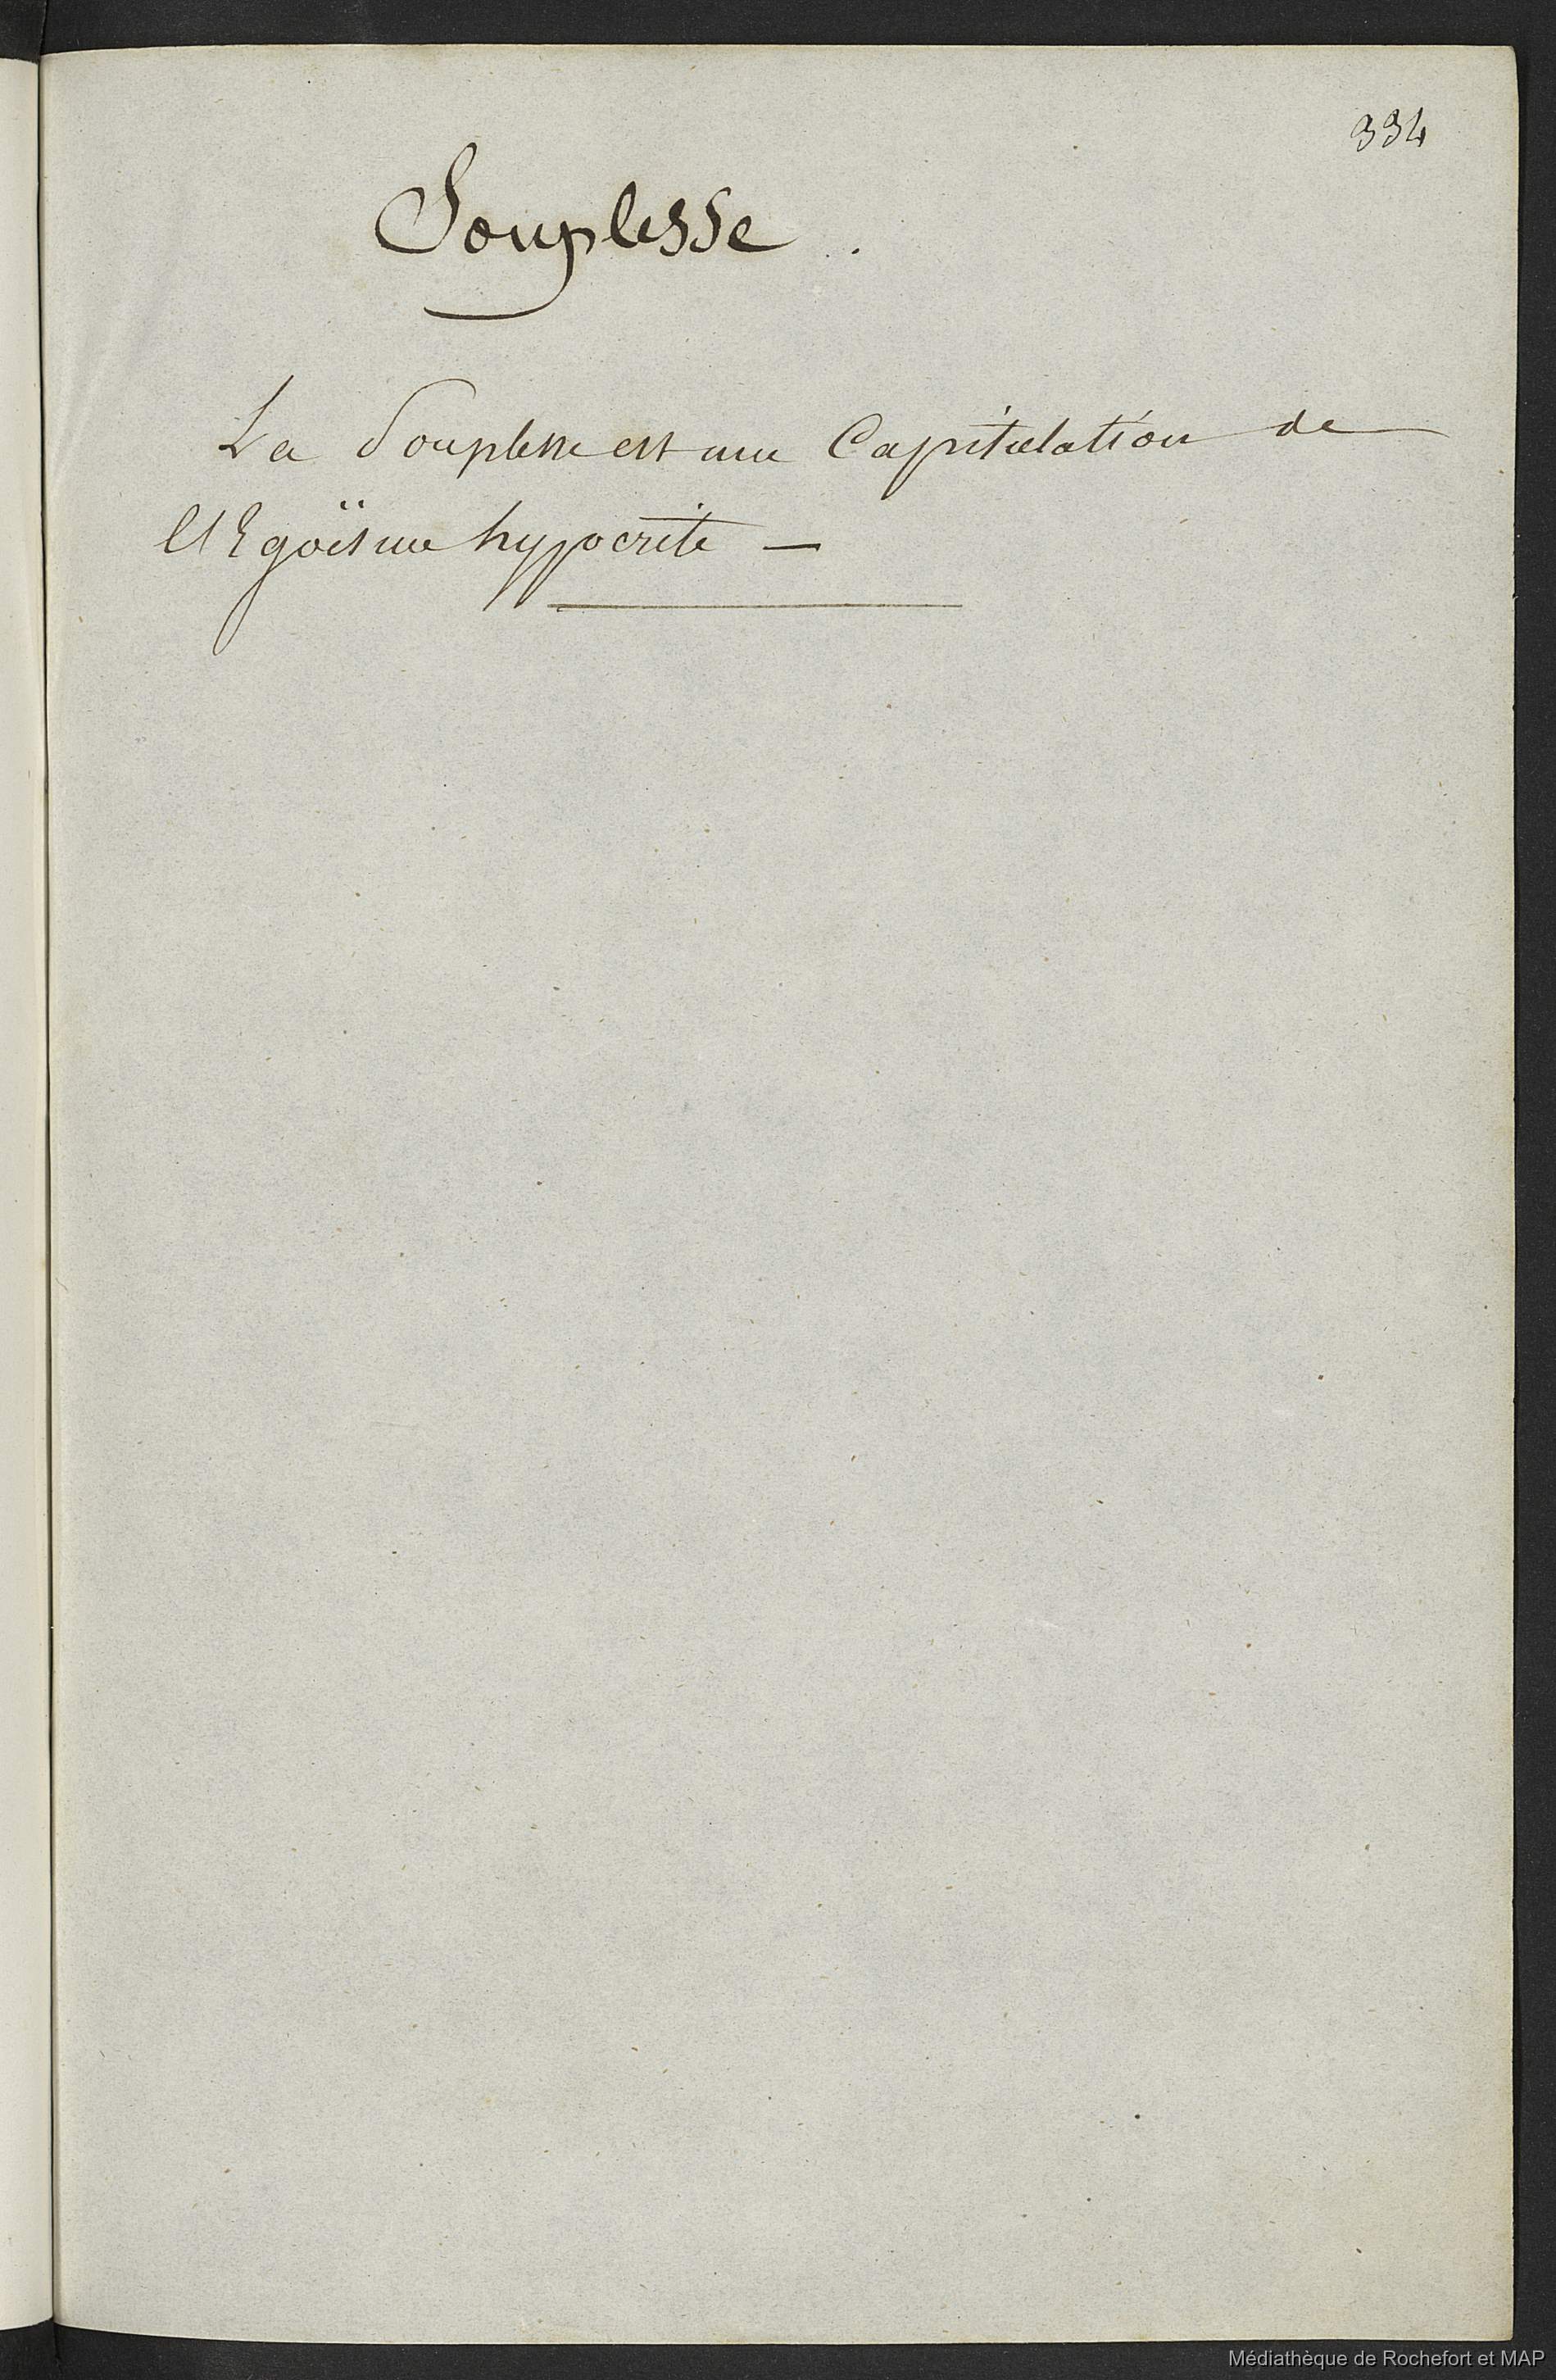 334
Souplesse .
La Souplesse est une Capitulation de
l'Egoïsme hypocrite —
Médiathèque de Rochefort et MAP